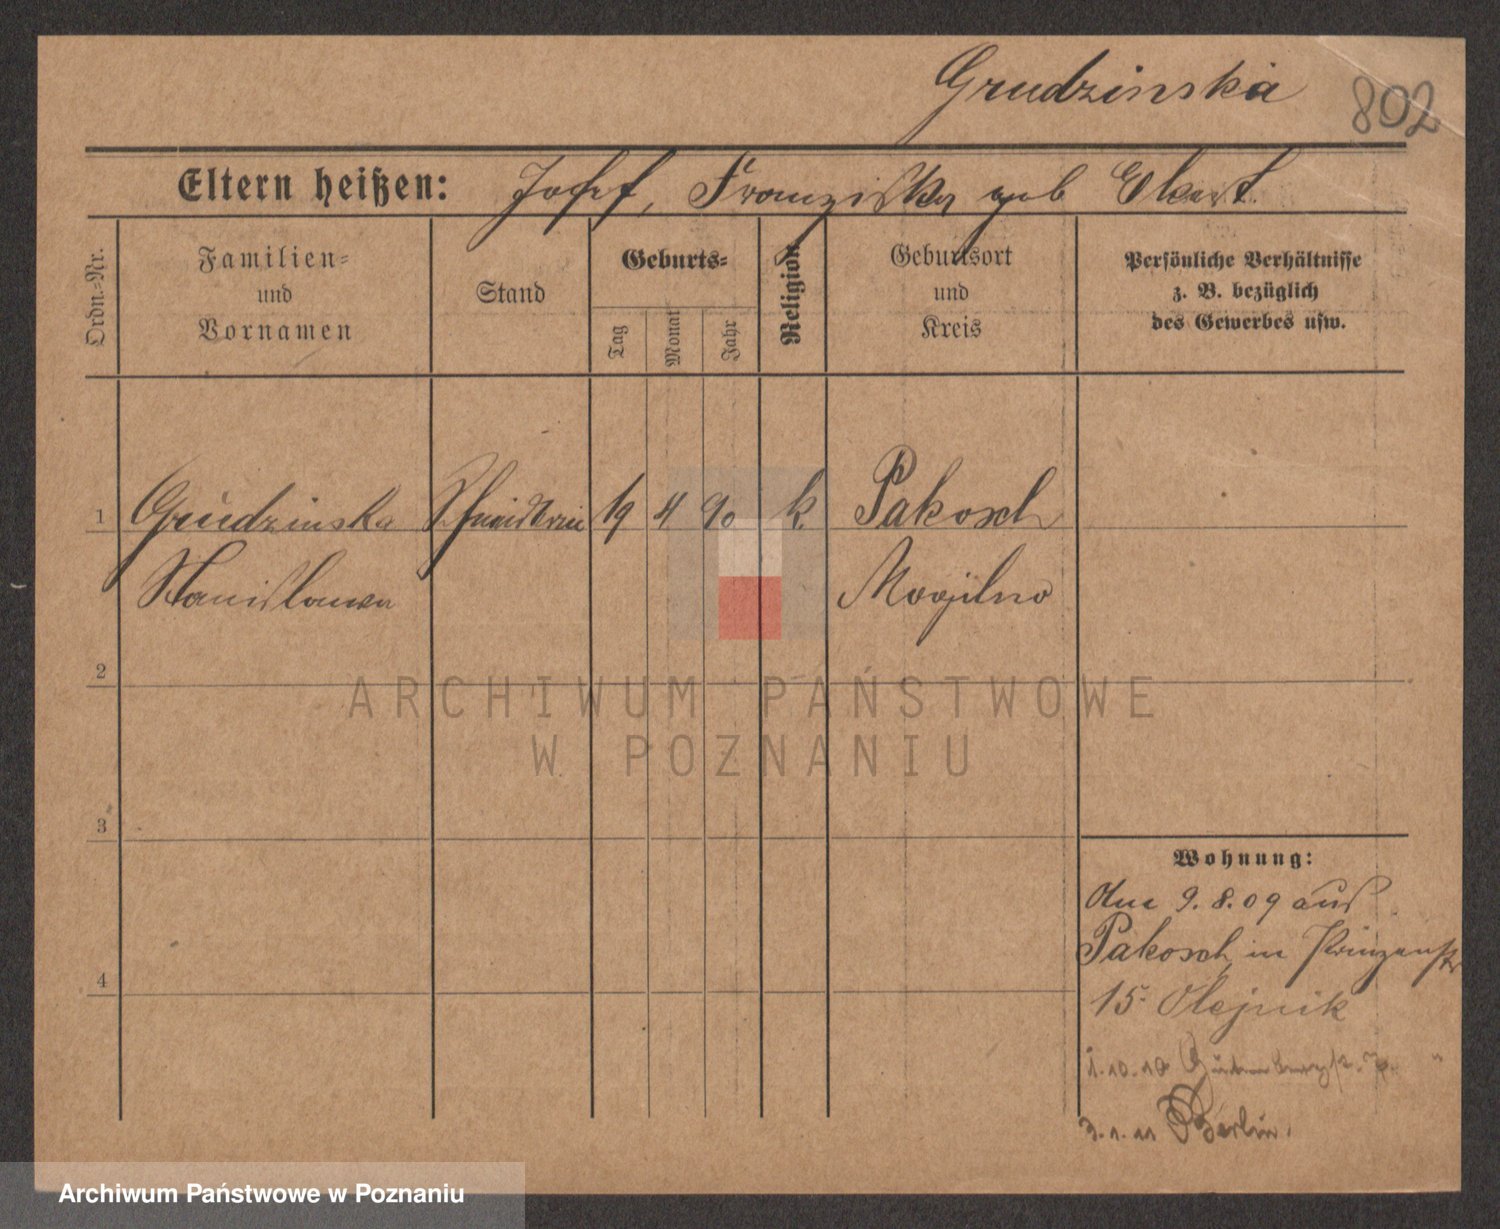 Grudzinska
802
Eltern heißen: Josef, Franziska geb Ekert
Ordn.-Nr.
Familien-
und
Vornamen
Stand
Geburts-
Tag
Monat
Jahr
Religion
Geburtsort
und
Kreis
Persönliche Verhältnisse
z. B. bezüglich
des Gewerbes usw.
1 Grudzinska Schneiderin 19 4 90 k. Pakosch
Stanislawa Mogilno
2
3
4
Wohnung:
9.8.09 aus
Pakosch, in Prinzenstr
15 Olejnik
1.10.10
3.1.11 Berlin.
ARCHIWUM PAŃSTWOWE
W POZNANIU
Archiwum Państwowe w Poznaniu